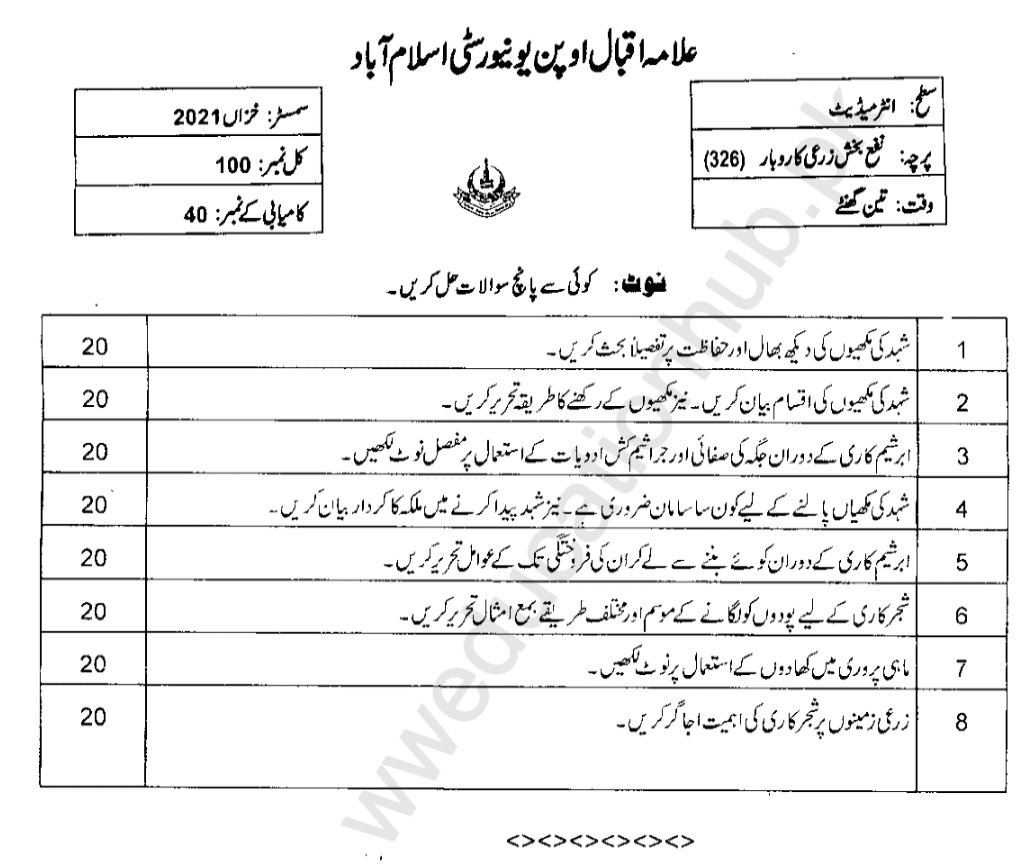 علامہ اقبال اوپن یونیورسٹی اسلام آباد
سطح: انٹرمیڈیٹ
پرچہ: نفع بخش زرعی کاروبار (326)
وقت: تین گھنٹے
سمسٹر: خزاں 2021
کل نمبر: 100
کامیابی کے نمبر: 40
نوٹ: کوئی سے پانچ سوالات حل کریں۔
1 شہد کی مکھیوں کی دیکھ بھال اور حفاظت پر تفصیلاً بحث کریں۔ 20
2 شہد کی مکھیوں کی اقسام بیان کریں۔ نیز مکھیوں کے رکھنے کا طریقہ تحریر کریں۔ 20
3 ابریشم کاری کے دوران جگہ کی صفائی اور جراثیم کش ادویات کے استعمال پر مفصل نوٹ لکھیں۔ 20
4 شہد کی مکھیاں پالنے کے لیے کون سا سامان ضروری ہے۔ نیز شہد پیدا کرنے میں ملکہ کا کردار بیان کریں۔ 20
5 ابریشم کاری کے دوران کوئے بننے سے لے کر ان کی فروختگی تک کے عوامل تحریر کریں۔ 20
6 شجرکاری کے لیے پودوں کو لگانے کے موسم اور مختلف طریقے بمع امثال تحریر کریں۔ 20
7 ماہی پروری میں کھادوں کے استعمال پر نوٹ لکھیں۔ 20
8 زرعی زمینوں پر شجرکاری کی اہمیت اجاگر کریں۔ 20
<><><><><><>
wweducationhub.pk